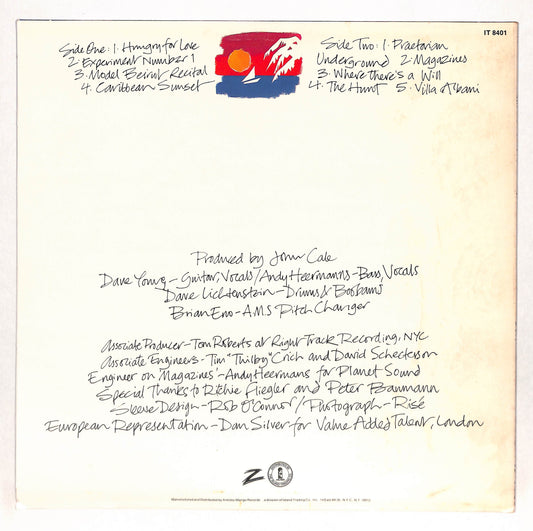 IT 8401
Side One: 1. Hungry for Love
2. Experiment Number 1
3. Model Beirut Recital
4. Caribbean Sunset
Side Two: 1. Praetorian
Underground 2. Magazines
3. Where There's a Will
4. The Hunt 5. Villa Albani
Produced by John Cale
Dave Young – Guitar, Vocals / Andy Heermanns – Bass, Vocals
Dave Lichtenstein – Drums & Boobams
Brian Eno – AMS Pitch Changer
Associate Producer – Tom Roberts at Right Track Recording, NYC
Associate Engineers – Tim "Thilby" Crich and David Scheckerson
Engineer on 'Magazines' – Andy Heermans for Planet Sound
Special Thanks to Ritchie Fliegler and Peter Baumann
Sleeve Design – Rob O'Connor / Photograph – Risé
European Representation – Dan Silver for Value Added Talent, London
Z